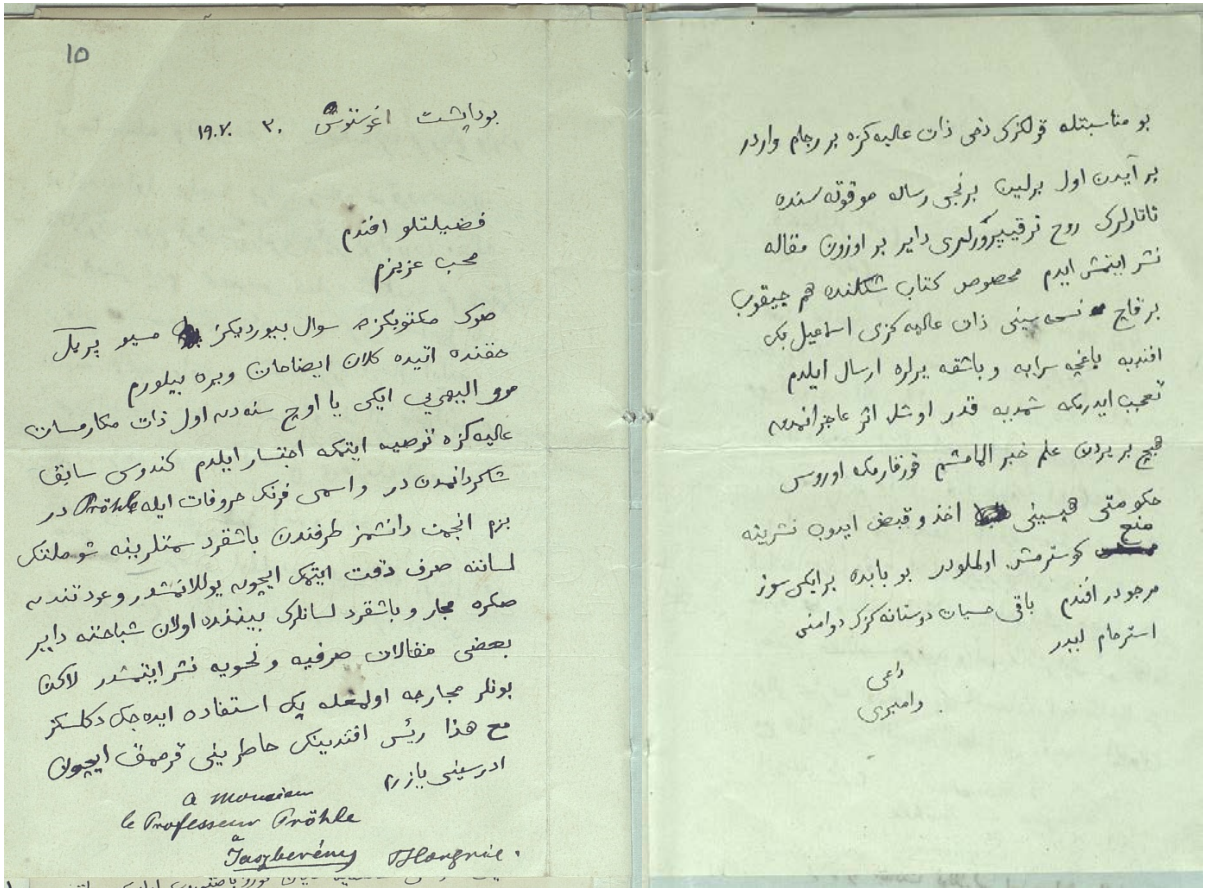 10
بوداپشت اغوستوس ٣٠ ١٩٠٧
فضيلتلو افندم
محب عزيزم
صوك مكتوبكزده سوال بيورديكز مسيو پريك
حقنده اتيده كلان ايضاحات ويره بيلورم
ايكى يا اوچ سنه دن اول ذات مكارمسات
عاليه كزه توصيه ايتمكه اجتسار ايلدم كندوسى سابق
شاكردانمدن در و اسمى فرنك حروفات ايله Pröhle در
بزم انجمن دانشمز طرفندن باشقرد سمتلرينه شو ملتنك
لساننه صرف دقت ايتمك ايچون يوللانمشدر وعودتندن
صكره مجار و باشقرد لسانلرك بيننده اولان شباهته داير
بعضى مقالات صرفيه و نحويه نشر ايتمشدر لاكن
بونلر مجارجه اولمغله پك استفاده ايده جك دكلسكز
مع هذا رئيس افندينك خاطرينى قرممق ايچون
ادرسينى يازرم
a Monsieur
le Professeur Pröhle
a
Jaszberény Hongrie.
بو مناسبتله قولكزك دخى ذات عاليه كزه بر رجام واردر
بر آيدن اول برلين برنجى رساله موقوته سنده
تاتارلرك روح ترقيپرورلرى داير بر اوزون مقاله
نشر ايتمش ايدم مخصوص كتاب شكلنده هم چيقوب
بر قاچ نسخه سينى ذات عاليه كزى اسماعيل بك
افنديه باغچه سرايه و باشقه يرلره ارسال ايلدم
تعجب ايدرمكه شمديه قدر اوشل اثر عاجزانمدن
هيچ بر يردن علم خبر المامشم قورقارمكه اوروس
حكومتى هپسينى اخذ و قبض ايدوب نشرينه
منع
كوسترمش اولملودر بو بابده بر ايكى سوز
مرجودر افندم باقى حسيات دوستانه كزك دوامنى
استرحام ايدر
داعى
وامبرى